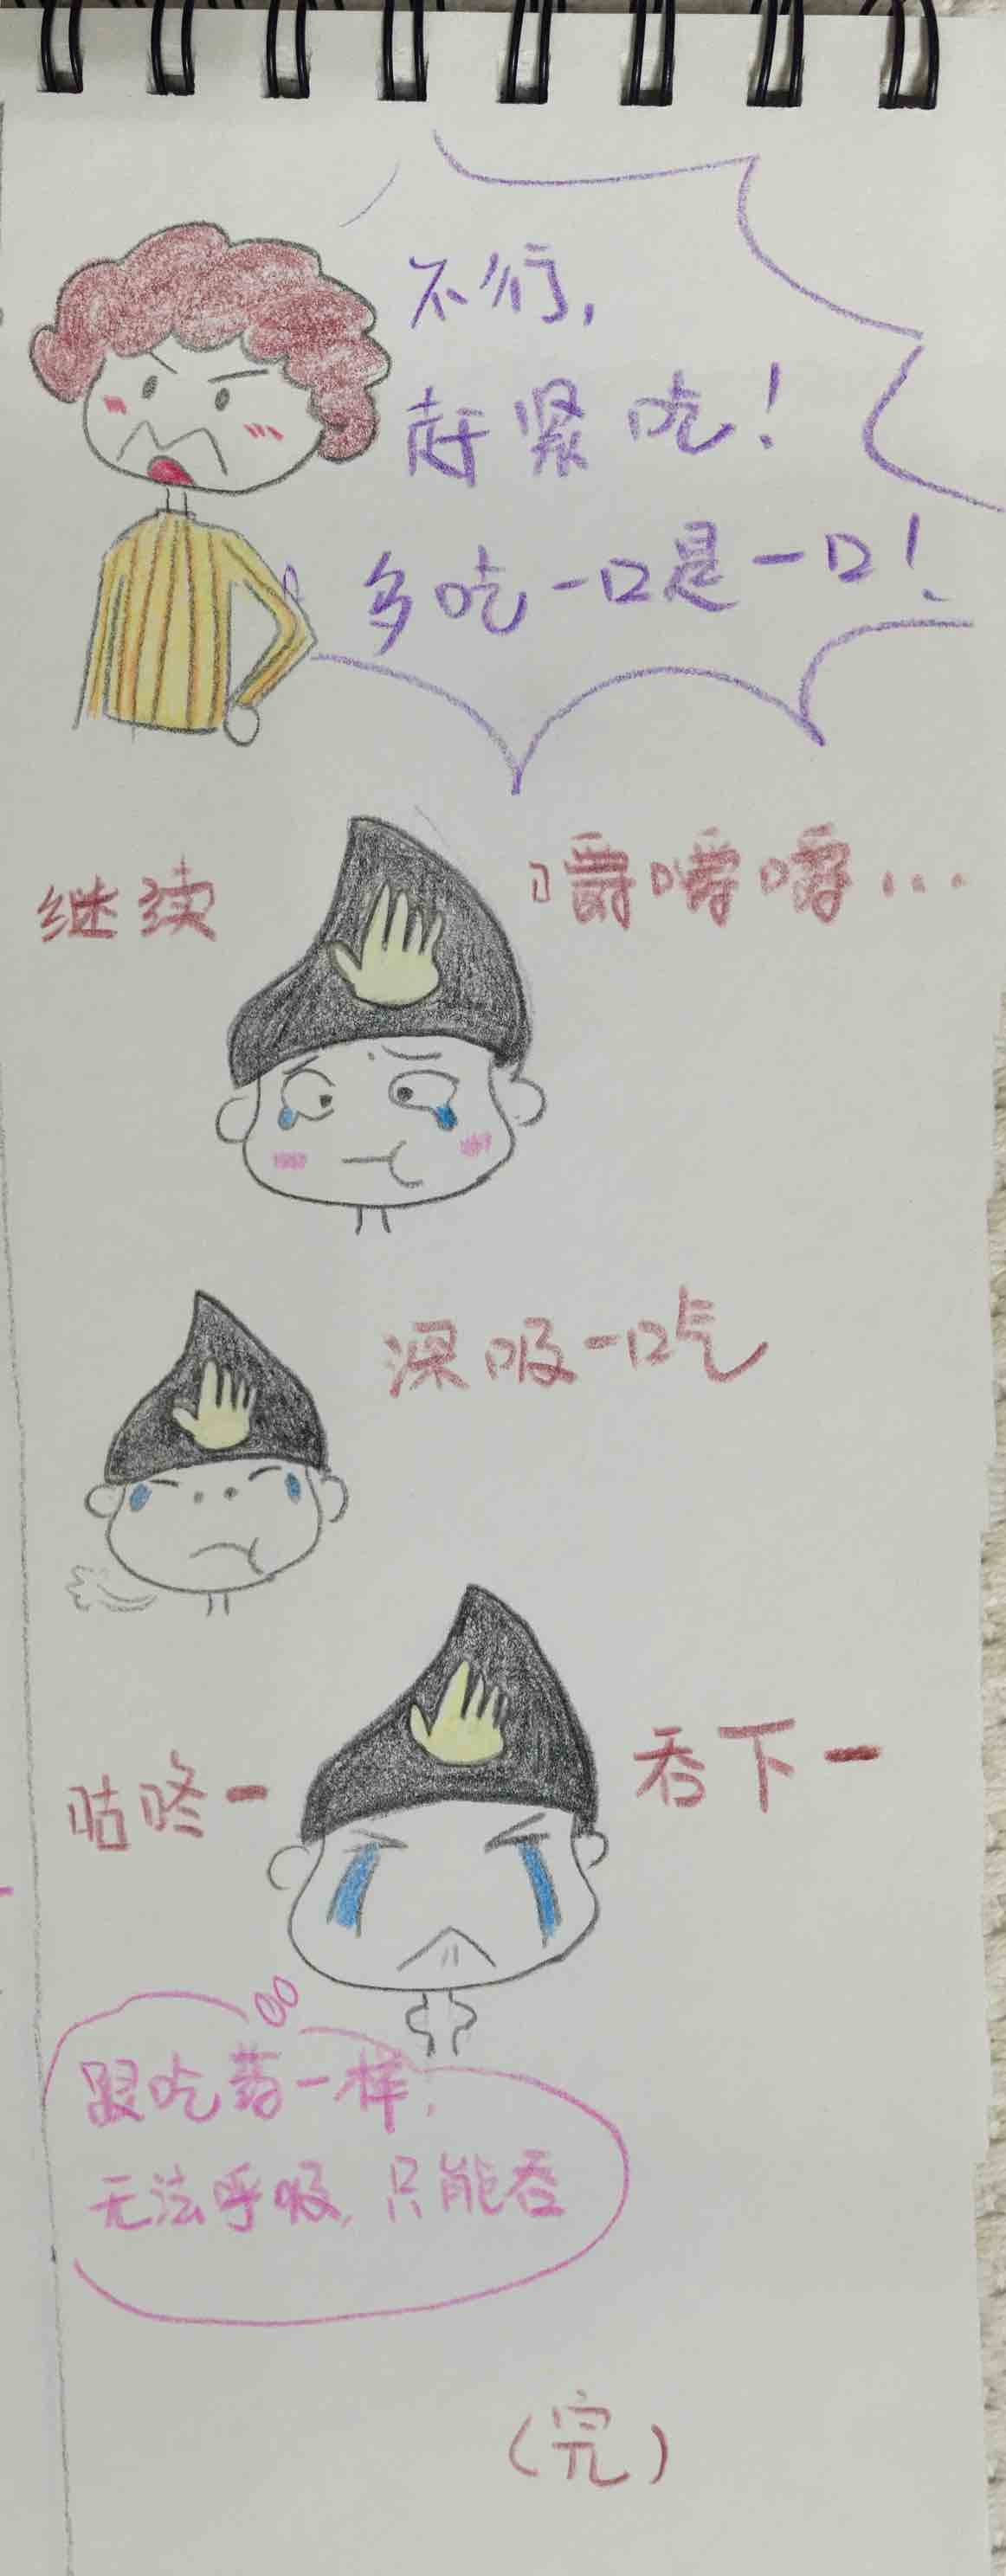 不行,
赶紧吃!
多吃一口是一口!
继续 嚼嚼嚼...
深吸一口气
咕咚一 吞下一
跟吃药一样,
无法呼吸,只能吞
(完)